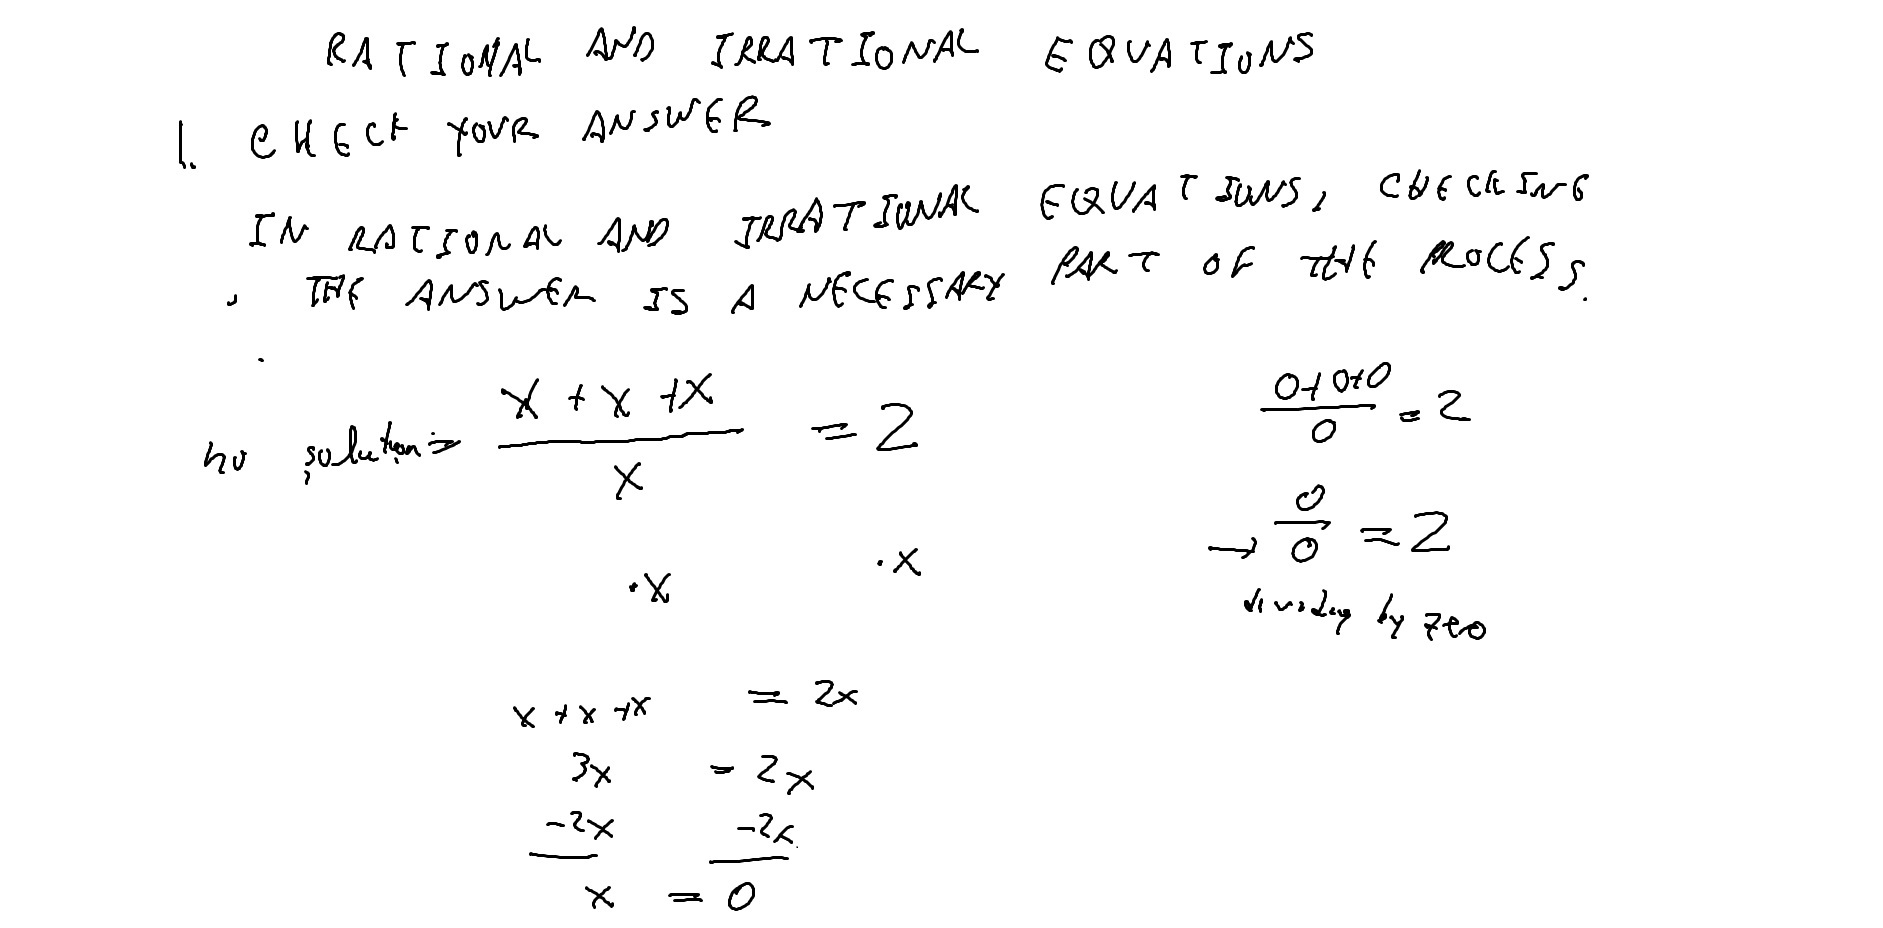 RATIONAL AND IRRATIONAL EQUATIONS
1. CHECK YOUR ANSWER
IN RATIONAL AND IRRATIONAL EQUATIONS, CHECKING
THE ANSWER IS A NECESSARY PART OF THE PROCESS.
no solution ⇒ (x + x + x)/x = 2
·x ·x
x + x + x = 2x
3x = 2x
-2x -2x
x = 0
(0+0+0)/0 = 2
→ 0/0 = 2
dividing by zero